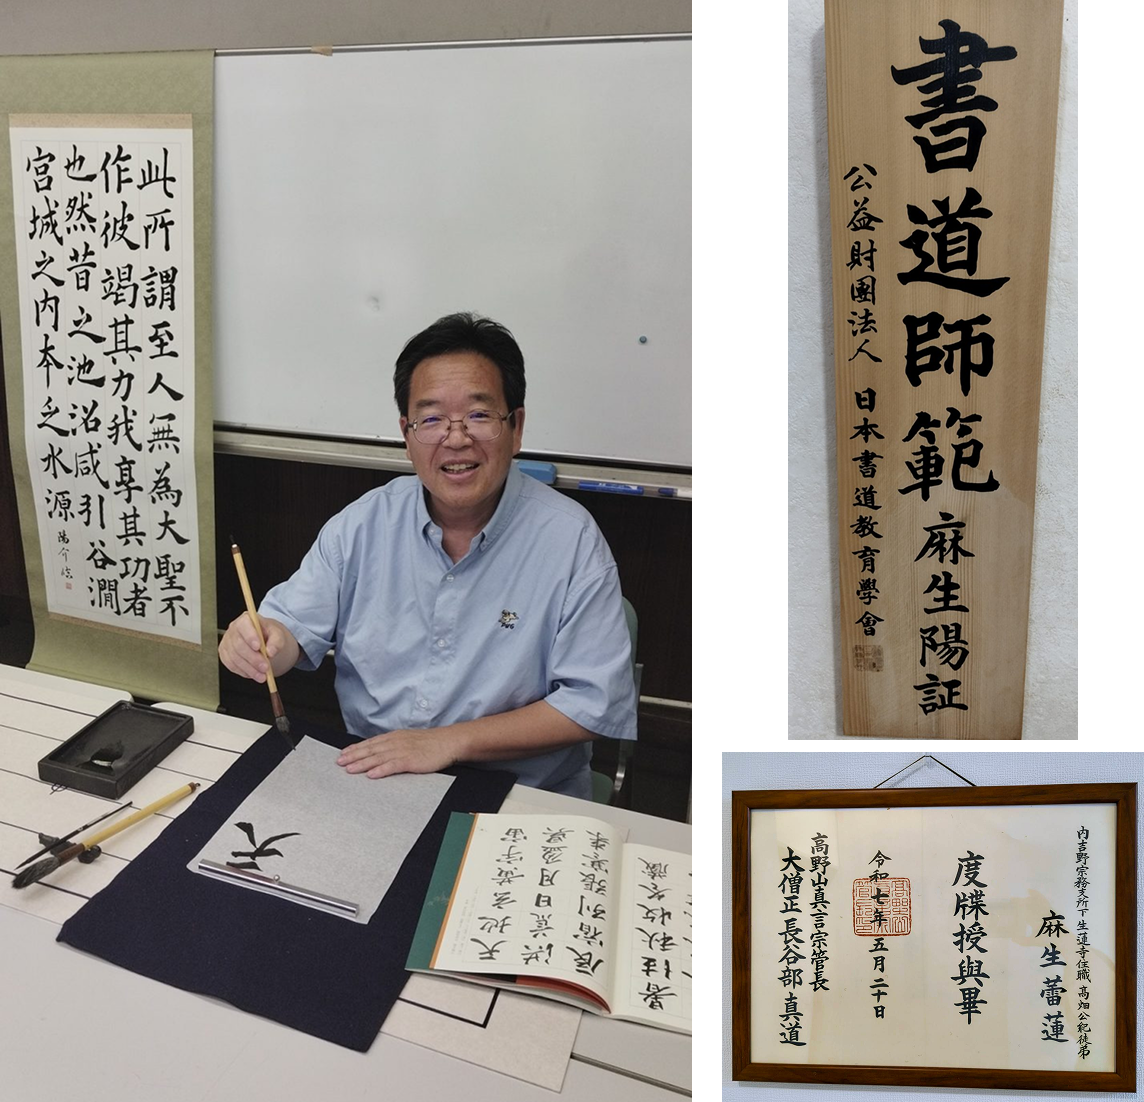 此所謂至人無為大聖不
作彼竭其力我享其功者
也然昔之池沼咸引谷澗
宮城之内本乏水源
天
天地玄黄宇宙
洪荒日月盈昃
辰宿列張寒来
暑往秋收冬藏
書道師範 麻生陽証
公益財團法人 日本書道教育學會
内吉野宗務支所下 生蓮寺住職 高畑公紀徒弟
麻生蕾蓮
度牒授與畢
令和七年五月二十日
高野山真言宗管長
大僧正 長谷部真道